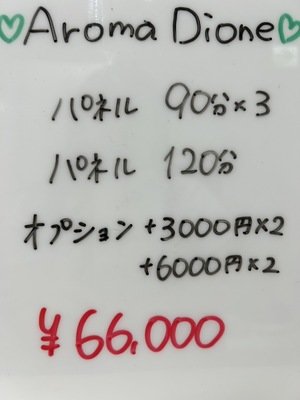 ♡Aroma Dione♡
パネル 90分×3
パネル 120分
オプション +3000円×2
+6000円×2
¥66,000